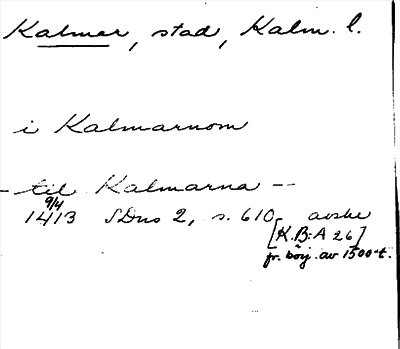 Kalmar, stad, Kalm. l.
i Kalmarnom
- til Kalmarna --
9/4
1413 SDns 2, s. 610, avskr
[K.B:A 26]
fr. börj. av 1500-t.